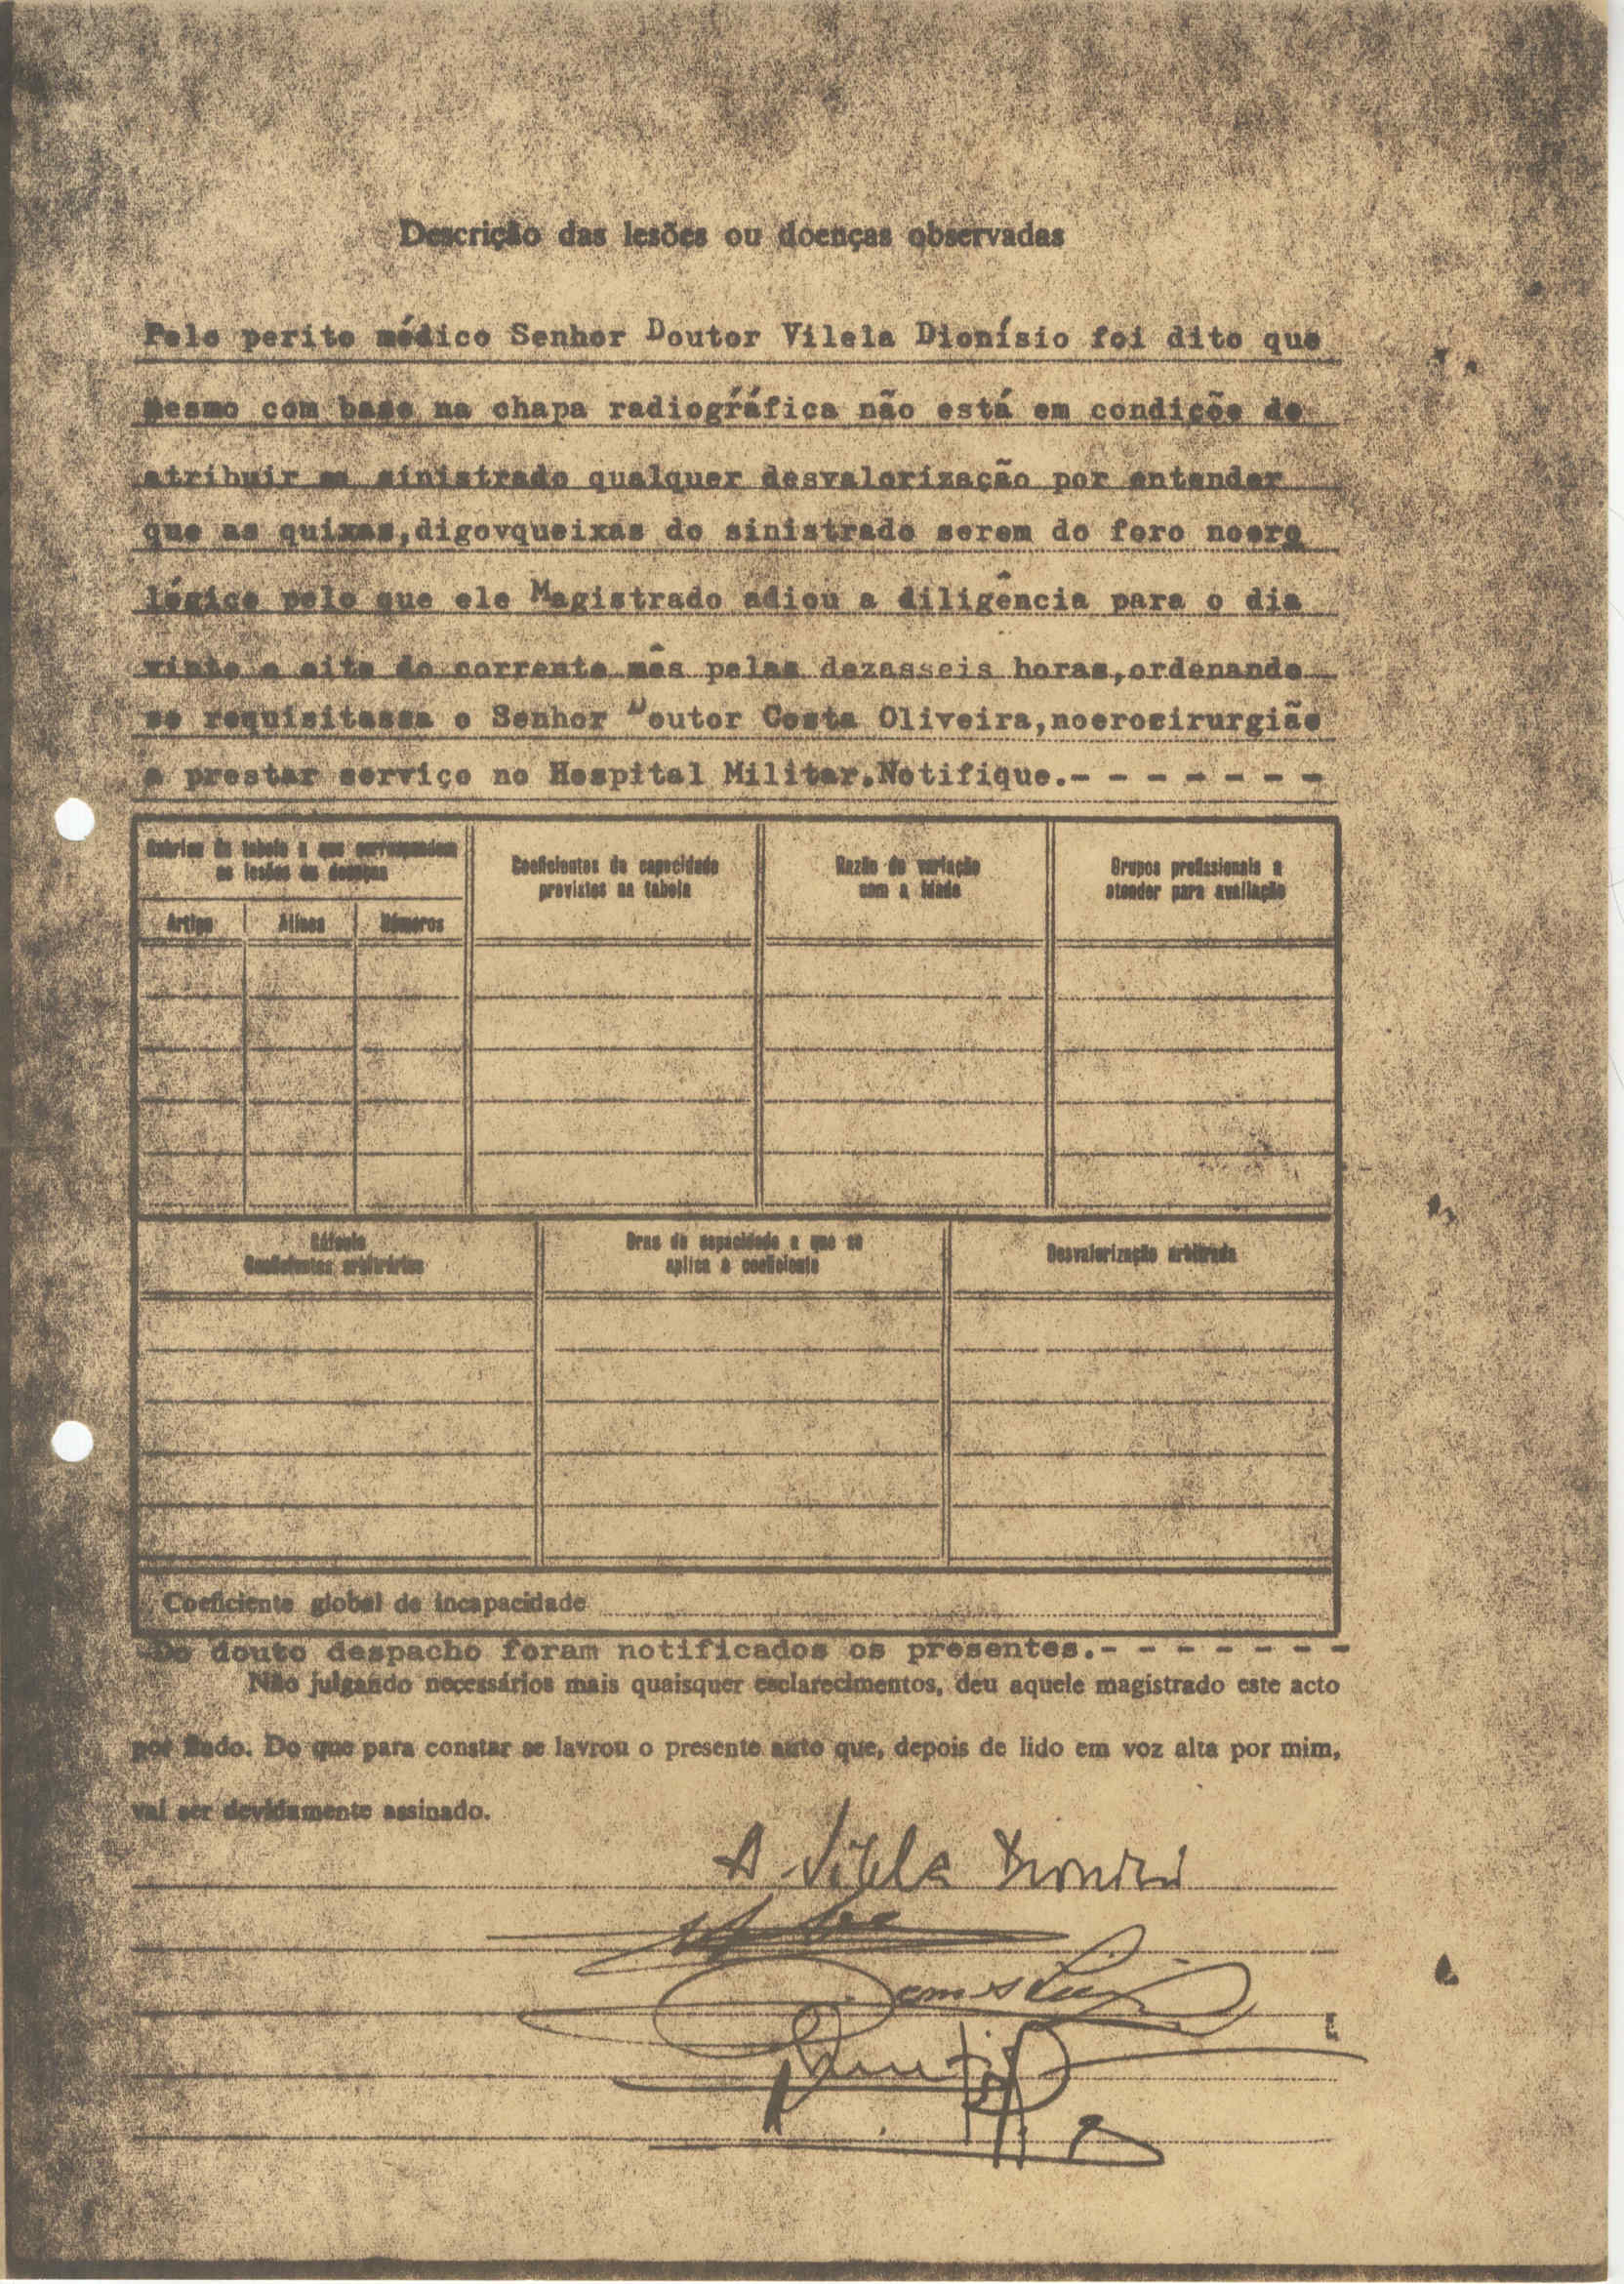 Descrição das lesões ou doenças observadas
Pelo perito médico Senhor Doutor Vilela Dionísio foi dito que
mesmo com base na chapa radiográfica não está em condiçõe de
atribuir ao sinistrado qualquer desvalorização por entender
que as quixas,digovqueixas do sinistrado serem do foro noero
lógico pelo que ele Magistrado adiou a diligência para o dia
vinte e oito do corrente mês pelas dezasseis horas,ordenando
se requisitasse o Senhor Doutor Costa Oliveira,noerocirurgião
a prestar serviço no Hospital Militar.Notifique.- - - - - - -
Rubrica da tabela a que correspondem
as lesões ou doenças
Artigo Alínea Números
Coeficientes de capacidade
previstos na tabela
Razão de variação
com a idade
Grupos profissionais a
atender para avaliação
Cálculo
Coeficientes arbitrários
Grau de capacidade a que se
aplica o coeficiente
Desvalorização arbitrada
Coeficiente global de incapacidade
-Do douto despacho foram notificados os presentes.- - - - - - -
Não julgando necessários mais quaisquer esclarecimentos, deu aquele magistrado este acto
por findo. Do que para constar se lavrou o presente auto que, depois de lido em voz alta por mim,
vai ser devidamente assinado.
A. Vilela Dionísio